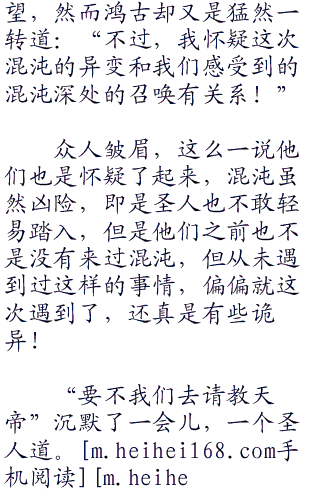 望，然而鸿古却又是猛然一
转道：“不过，我怀疑这次
混沌的异变和我们感受到的
混沌深处的召唤有关系！”
众人皱眉，这么一说他
们也是怀疑了起来，混沌虽
然凶险，即是圣人也不敢轻
易踏入，但是他们之前也不
是没有来过混沌，但从未遇
到过这样的事情，偏偏就这
次遇到了，还真是有些诡
异！
“要不我们去请教天
帝”沉默了一会儿，一个圣
人道。[m.heihei168.com手
机阅读][m.heihe